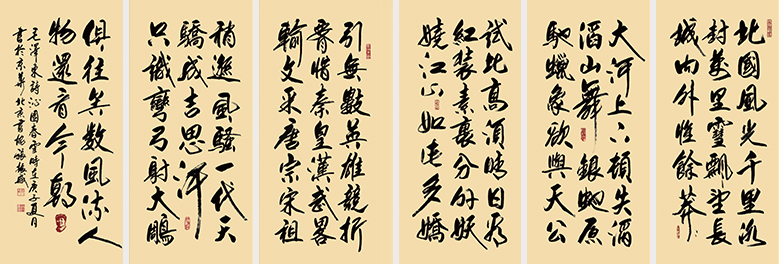 北國風光千里冰
封萬里雪飄望長
城內外惟餘莽
大河上下頓失滔
滔山舞銀蛇原
馳蠟象欲與天公
試比高須晴日看
紅裝素裹分外妖
嬈江山如此多嬌
引無數英雄競折
腰惜秦皇漢武略
輸文采唐宗宋祖
稍遜風騷一代天
驕成吉思汗
只識彎弓射大鵰
俱往矣數風流人
物還看今朝
毛澤東詩沁園春雪時在庚子夏月
書於京華北京